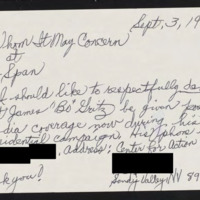 Sept, 3, 19
Whom It May Concern
at
Span
I should like to respectfully
James "Bo" Gritz be given
dia coverage now during his
idential campaign. His phone
Address: Center for Action
k you!
Sandy Valley, NV 89